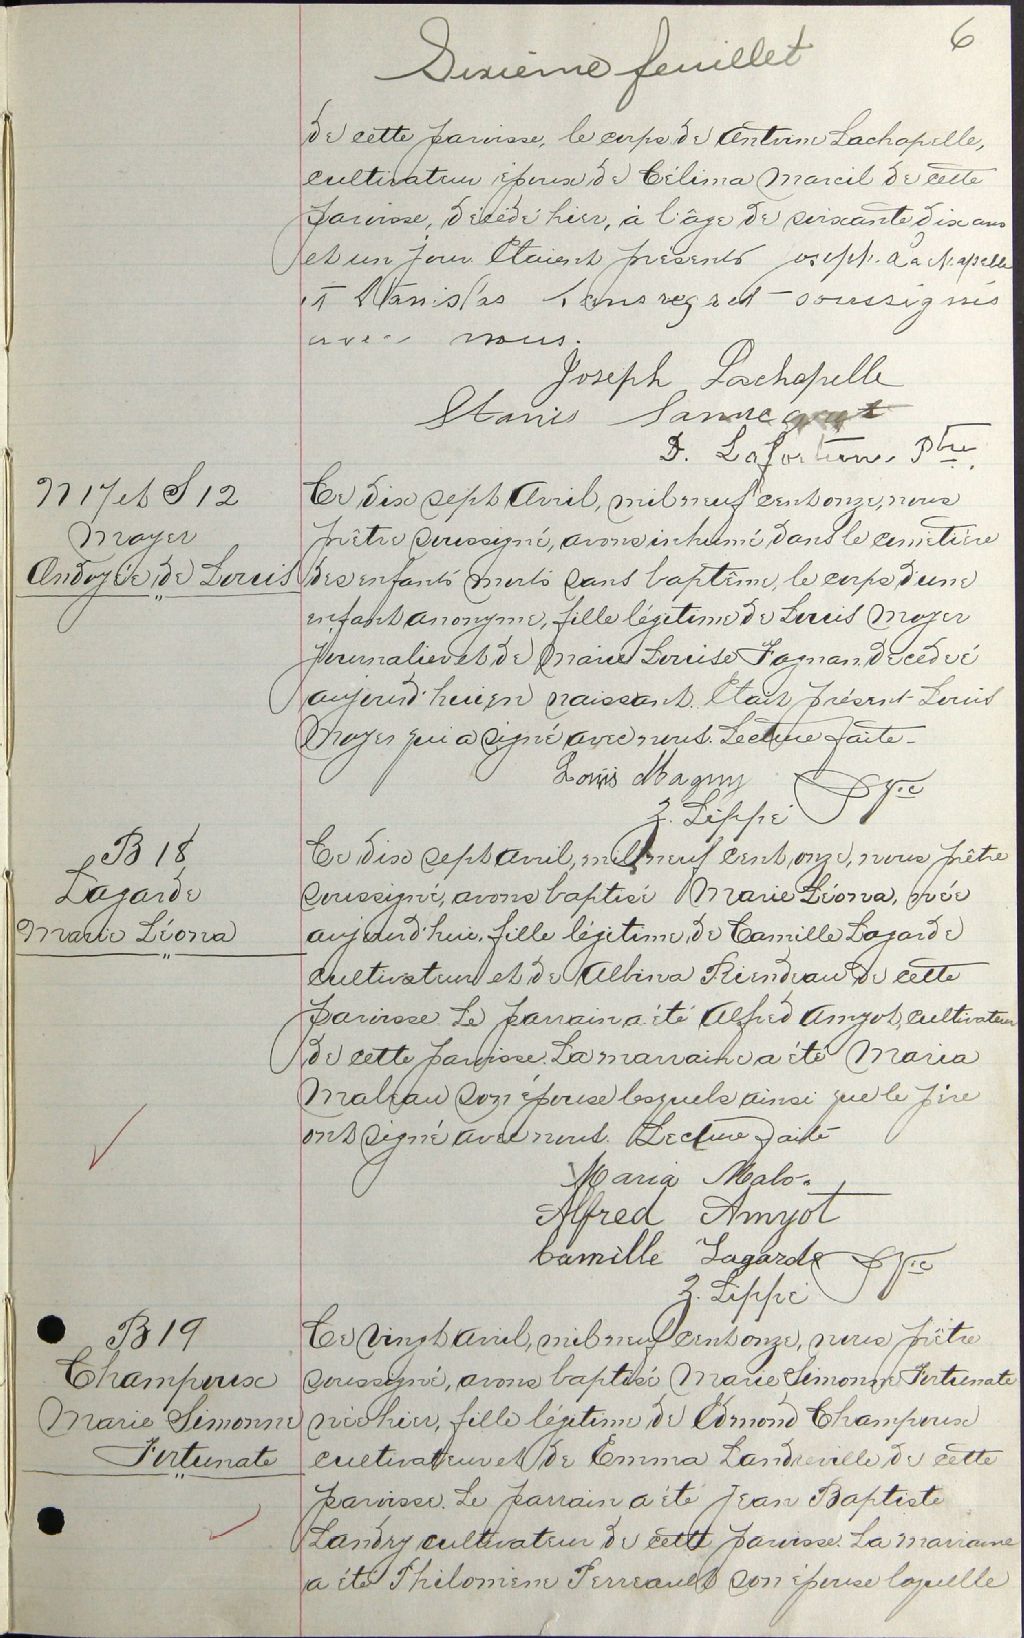 6
Sixième feuillet
de cette paroisse, le corps de Antoine Lachapelle,
cultivateur époux de Célima Marcil de cette
paroisse, décédé hier, à l'âge de soixante dix ans
et un jour Étaient présents Joseph Lachapelle
et Stanislas Sansregret soussignés
avec nous.
Joseph Lachapelle
Stanis Sansregret
D. Lafortune Ptre
N 17 et S 12
Moyer
Ondoyée de Louis
Ce dix sept Avril, mil neuf cent onze, nous
prêtre soussigné, avons inhumé dans le cimetière
des enfants morts sans baptême, le corps d'une
enfant anonyme, fille légitime de Louis Moyer
journalier et de Marie Louise Fagnan décédée
aujourd'hui en naissant. Était présent Louis
Moyer qui a signé avec nous. Lecture faite.
Louis Magny
Z. Lippé Vic
B 18
Lagarde
Marie Léona
Ce dix sept Avril, mil neuf cent onze, nous prêtre
soussigné, avons baptisé Marie Léona, née
aujourd'hui, fille légitime de Camille Lagarde
cultivateur et de Albina Riendeau de cette
paroisse. Le parrain a été Alfred Amyot, cultivateur
de cette paroisse. La marraine a été Maria
Maleau son épouse lesquels ainsi que le père
ont signé avec nous. Lecture faite
Maria Malo.
Alfred Amyot
Camille Lagarde
Z. Lippé Vic
B 19
Champoux
Marie Simonne
Fortunate
Ce vingt Avril, mil neuf cent onze, nous prêtre
soussigné, avons baptisé Marie Simonne Fortunate
née hier, fille légitime de Edmond Champoux
cultivateur et de Emma Landreville de cette
paroisse. Le parrain a été Jean Baptiste
Landry cultivateur de cette paroisse. La marraine
a été Philomène Perreault son épouse laquelle